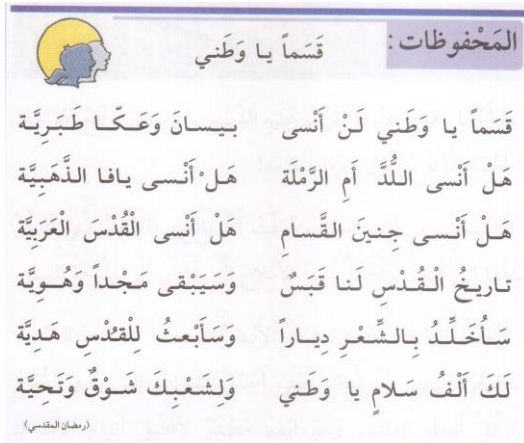 المَحْفوظات :
قَسَماً يا وَطَني
قَسَماً يا وَطَني لَنْ أَنْسى بـيـسـانَ وَعَـكّـا طَبَـرِيَّـة
هَل أَنْسى الـلُّـدَّ أَمِ الرَّمْلة هـلْ أَنْـسـى يافا الذَّهَبِيَّة
هَـلْ أَنْـسـى جِنينَ القَّسام هَلْ أَنْسى الْقُدْس الْعَرَبِيَّة
تاريخُ الْـقُـدْسِ لَـنا قَـبَس وسَـيـبْـقـى مَـجْـداً وَهُـوِيَّة
سَـأُخَـلِّـدُ بِـالـشِّـعْـرِ دِيـاراً وَسَـأَبْـعـثُ لِلْقُـدْسِ هَـدِيَّة
لكَ أَلْفُ سَـلامٍ يا وَطَني ولـشـعْـبـك شـوْقٌ وَتَـحِـيَّة
(رمضان المقدسي)